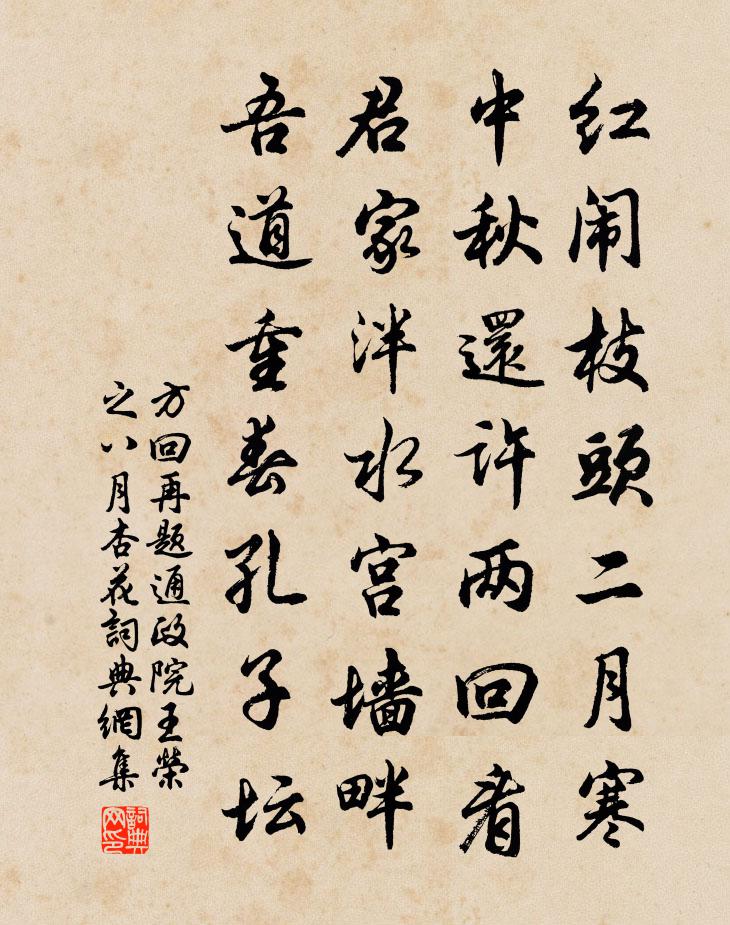 红闹枝頭二月寒
中秋還许两回看
君家泮水宫墙畔
吾道重春孔子坛
方回再题通政院王榮
之八月杏花詞典網集
詞典
网印